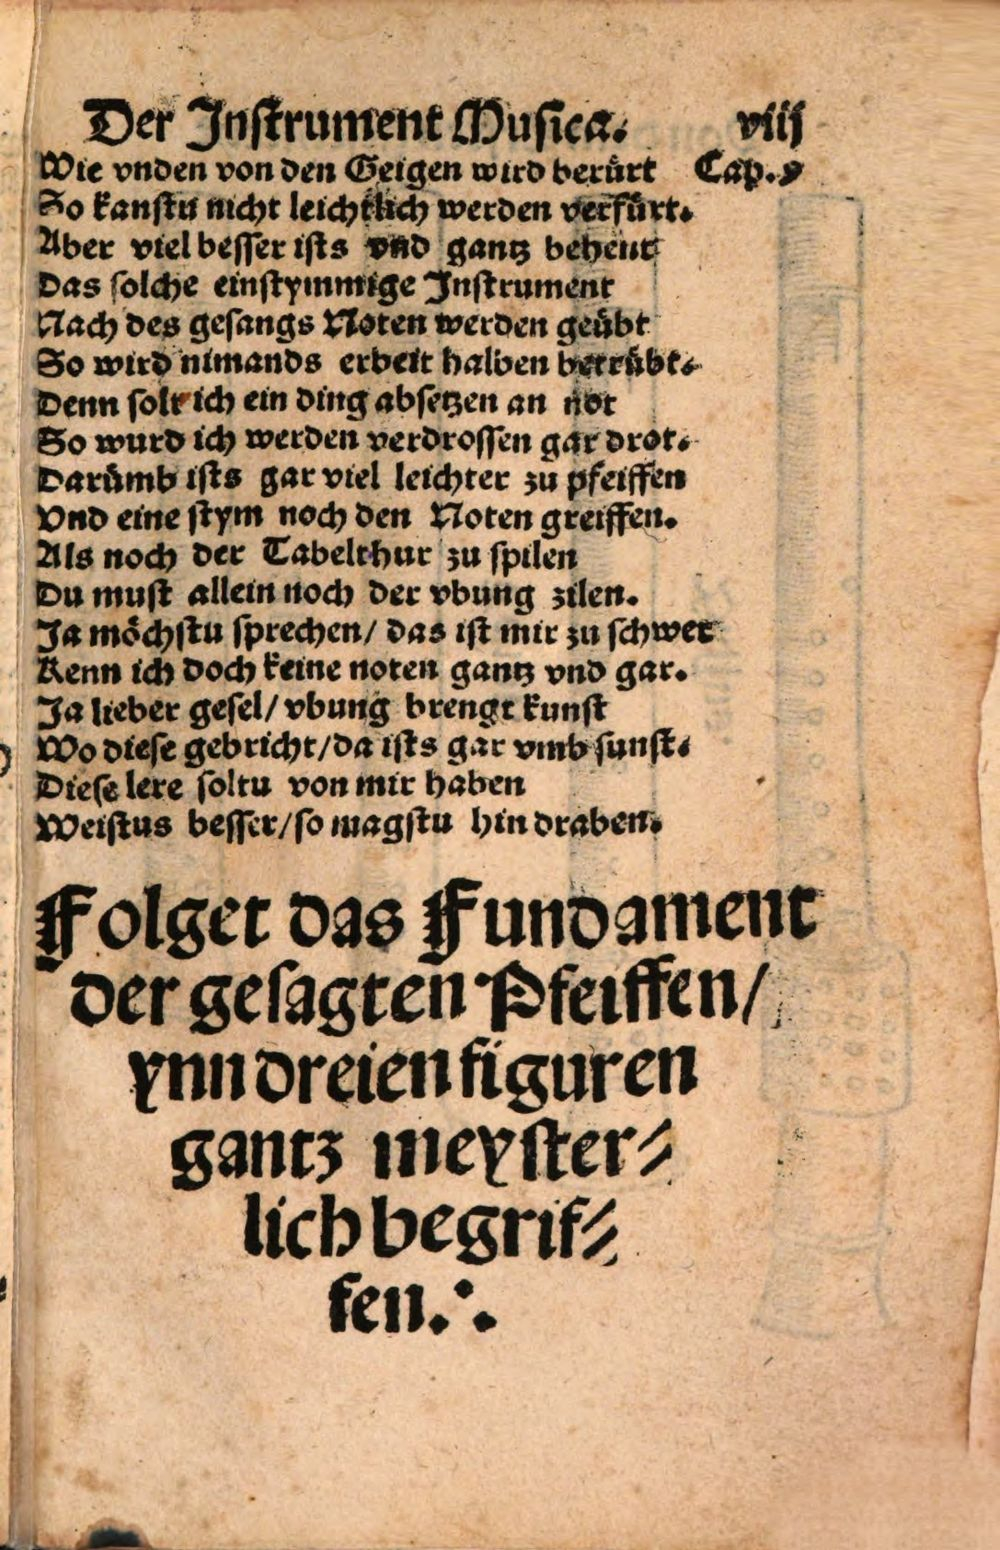 Der Instrument Musica. viij
Wie vnden von den Geigen wird berürt Cap. 9
So kanstu nicht leichtlich werden verfürt.
Aber viel besser ists vnd gantz behent
Das solche einstymmige Instrument
Nach des gesangs Noten werden geübt
So wird nimands erbeit halben betrübt.
Denn solt ich ein ding absetzen an not
So wurd ich werden verdrossen gar drot.
Darümb ists gar viel leichter zu pfeiffen
Vnd eine stym noch den Noten greiffen.
Als noch der Tabelthur zu spilen
Du must allein noch der vbung zilen.
Ja möchstu sprechen/ das ist mir zu schwer
Kenn ich doch keine noten gantz vnd gar.
Ja lieber gesel/ vbung brengt kunst
Wo diese gebricht/ da ists gar vmb sunst.
Diese lere soltu von mir haben
Weistus besser/ so magstu hin draben.
Folget das Fundament
der gesagten Pfeiffen/
ynn dreien figuren
gantz meyster⸗
lich begrif⸗
fen.